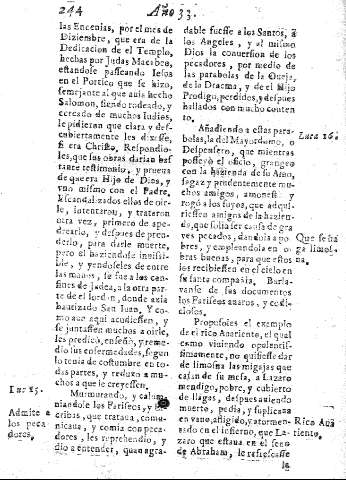 244
Año 33.
las Encenias, por el mes de
Diziembre, que era de la
Dedicacion de el Templo,
hechas por Judas Macabeo,
estandose passeando Jesus
en el Portico que se hizo,
semejante al que auia hecho
Salomon, siendo rodeado, y
cercado de muchos Iudios,
le pidieron que clara y des-
cubiertamente les dixesse,
si era Christo. Respondio-
les, que sus obras darian bas-
tante testimonio, y prueua
de que era Hijo de Dios, y
vno mismo con el Padre.
Escandalizados ellos de oir-
le, intentaron, y trataron
otra vez, primero de ape-
drearlo, y despues de pren-
derlo, para darle muerte,
pero el haziendose inuisi-
ble, y yendoseles de entre
las manos, se fue a los con-
fines de Judea, a la otra par-
te del Iordan, donde auia
bautizado San Iuan. Y co-
mo aun aqui acudiessen, y
se juntassen muchos a oirle,
les predicò, enseñò, y reme-
diò sus enfermedades, segun
lo tenia de costumbre en to-
das partes, y reduxo a mu-
chos a que le creyessen.
Luc 15.
Murmurando, y calum-
niandole los Fariseos, y Es-
Admite a
los peca
dores.
cribas, que trataua, comu-
nicaua, y comia con peca-
dores, les reprehendio, y
dio a entender, quan agra-
dable fuesse a los Santos, à
los Angeles, y al mismo
Dios la conuersion de los
pecadores, por medio de
las parabolas de la Oueja,
de la Dracma, y de el Hijo
Prodigo, perdidos, y despues
hallados con mucho conten
to.
Añadiendo a estas para-
Luca 16.
bolas, la del Mayordomo, o
Despensero, que mientras
posseyò el oficio, grangeò
con la hazienda de su Amo,
sagaz y prudentemente mu-
chos amigos, amonestò y
rogò a los suyos, que adqui-
riessen amigos de la hazien-
da, que solia ser causa de gra
ves pecados, dandola a po-
Que se ha
ga limos-
na.
bres, y empleandola en o-
bras buenas, para que estos
los recibiessen en el cielo en
su santa compañia. Burla-
vanse de sus documentos
los Fariseos auaros, y codi-
ciosos.
Propusoles el exemplo
de el rico Auariento, el qual
como viuiendo opulentis-
simamente, no quisiesse dar
de limosna las migajas que
caian de su mesa, a Lazaro
mendigo, pobre, y cubierto
de llagas, despues auiendo
muerto, pedia, y suplicaua
en vano, afligido, y atormen-
Rico Aua
riento.
tado en el infierno, que La-
zaro que estaua en el seno
de Abraham, le refrescasse
la